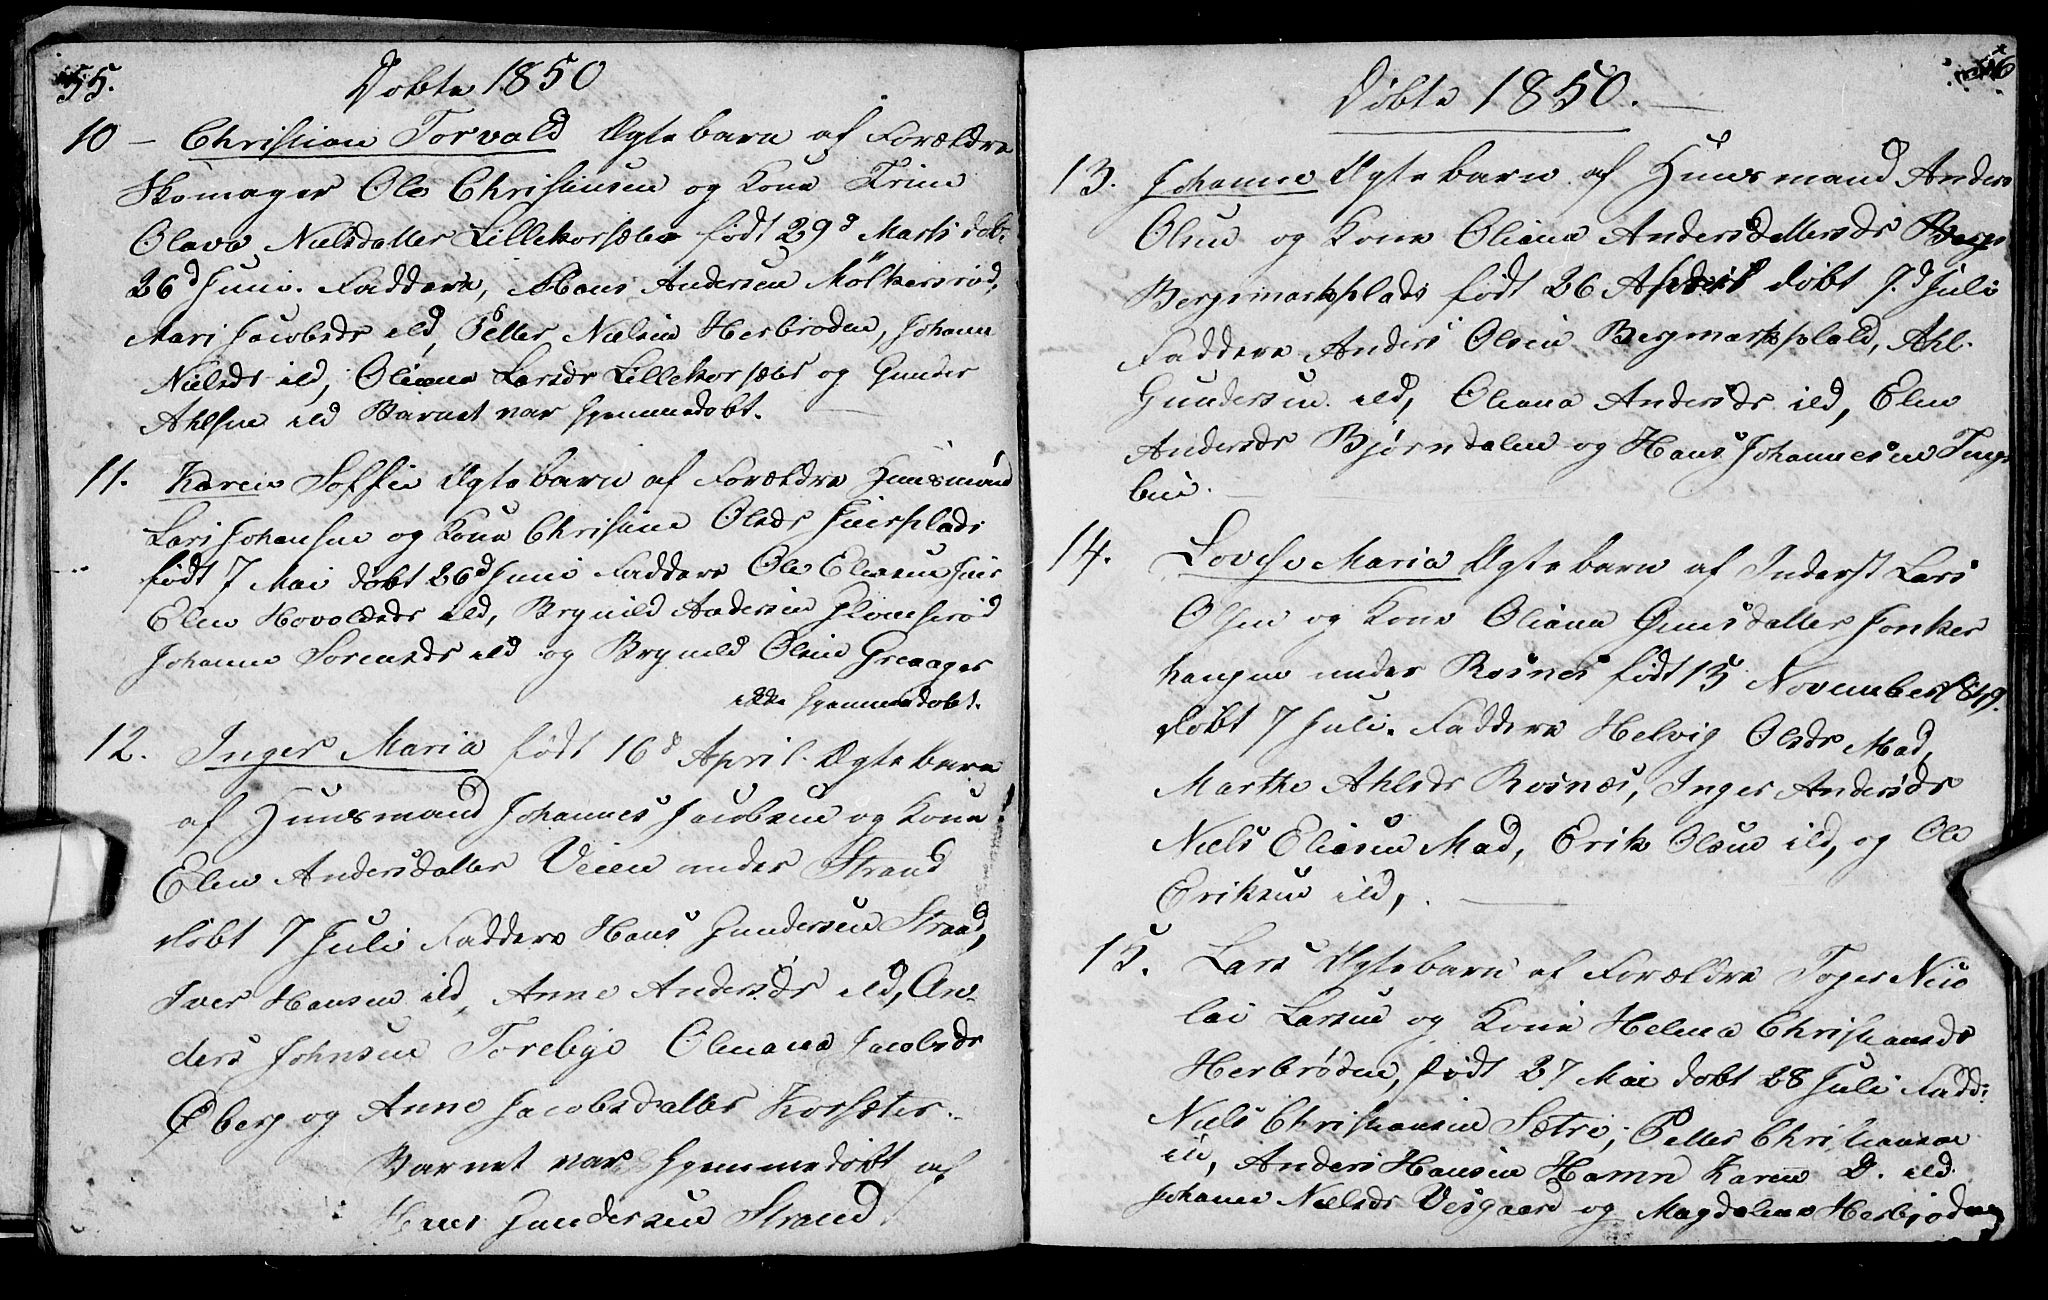 55.
Døbte 1850
10 – Christian Torvald Ægte barn af Forældre
Skomager Ole Christiansen og Kone Trine
Olava Nielsdatter Lillekorsæter født 29d Marts døb:
26d Juni. Faddere, Hans Andersen Mølkersrød,
Mari Jacobsds ild, Petter Nielsen Herbrøden, Johanne
Nielsds ild, Oliana Larsds Lillekorsæter og Gunder
Ahlsen ild Barnet var hjemmedøbt.
11. Karen Soffie Ægte barn af Forældre Huusmand
Lars Johansen og Kone Christine Olsds
født 7 Mai døbt 26d Juni Faddere Ole Eliasen
Elen ild, Brynild Andersen
Johanne Sørensds ild og Brynild Olsen Greaager
ikke hjemmedøbt.
12. Inger Maria født 16d April. Ægte barn
af Huusmand Johannes Jacobsen og Kone
Elen Andersdatter Veien under Strand
døbt 7 Juli Faddere Hans Gundersen Strand,
Iver Hansen ild, Anne Andersds ild, An-
ders Johnsen Torebye Olenana Jacobsds
Øberg og Anne Jacobsdatter Korsæter.
Barnet var hjemmedøbt af
Hans Gundersen Strand
56
Døbte 1850.
13. Johanne Ægte barn af Huusmand Anders
Olsen og Kone Oliana Andersdattersds
Bergsmarkplads født 26 April døbt 7d Juli
Faddere Anders Olsen Bergmarkplads, Ahl.
Gundersen ild, Oliana Andersds ild, Elen
Andersds Bjørndalen og Hans Johannesen Tings
buu.
14. Lovise Maria Ægte barn af Inderst Lars
Olsen og Kone Oliana
haugen under Rosnes født 15 November 1849.
døbt 7 Juli. Faddere Helvig Olsds Mad,
Marthe Ahlsds Rosnæs, Inger Andersds
Niels Eliasen Mad, Erik Olsen ild, og Ole
Eriksen ild,
15. Lars Ægte barn af Forældre Toger Nico
lai Larsen og Kone Helena Christiansds
Herbrøden, født 27 Mai døbt 28 Juli Fadd:
Niels Christiansen Sætre, Petter Christiansen
ild, Anders Hansen Hamn Karen D. ild
Johanne Nielsds Vesgaard og Magdalene Herbrøden